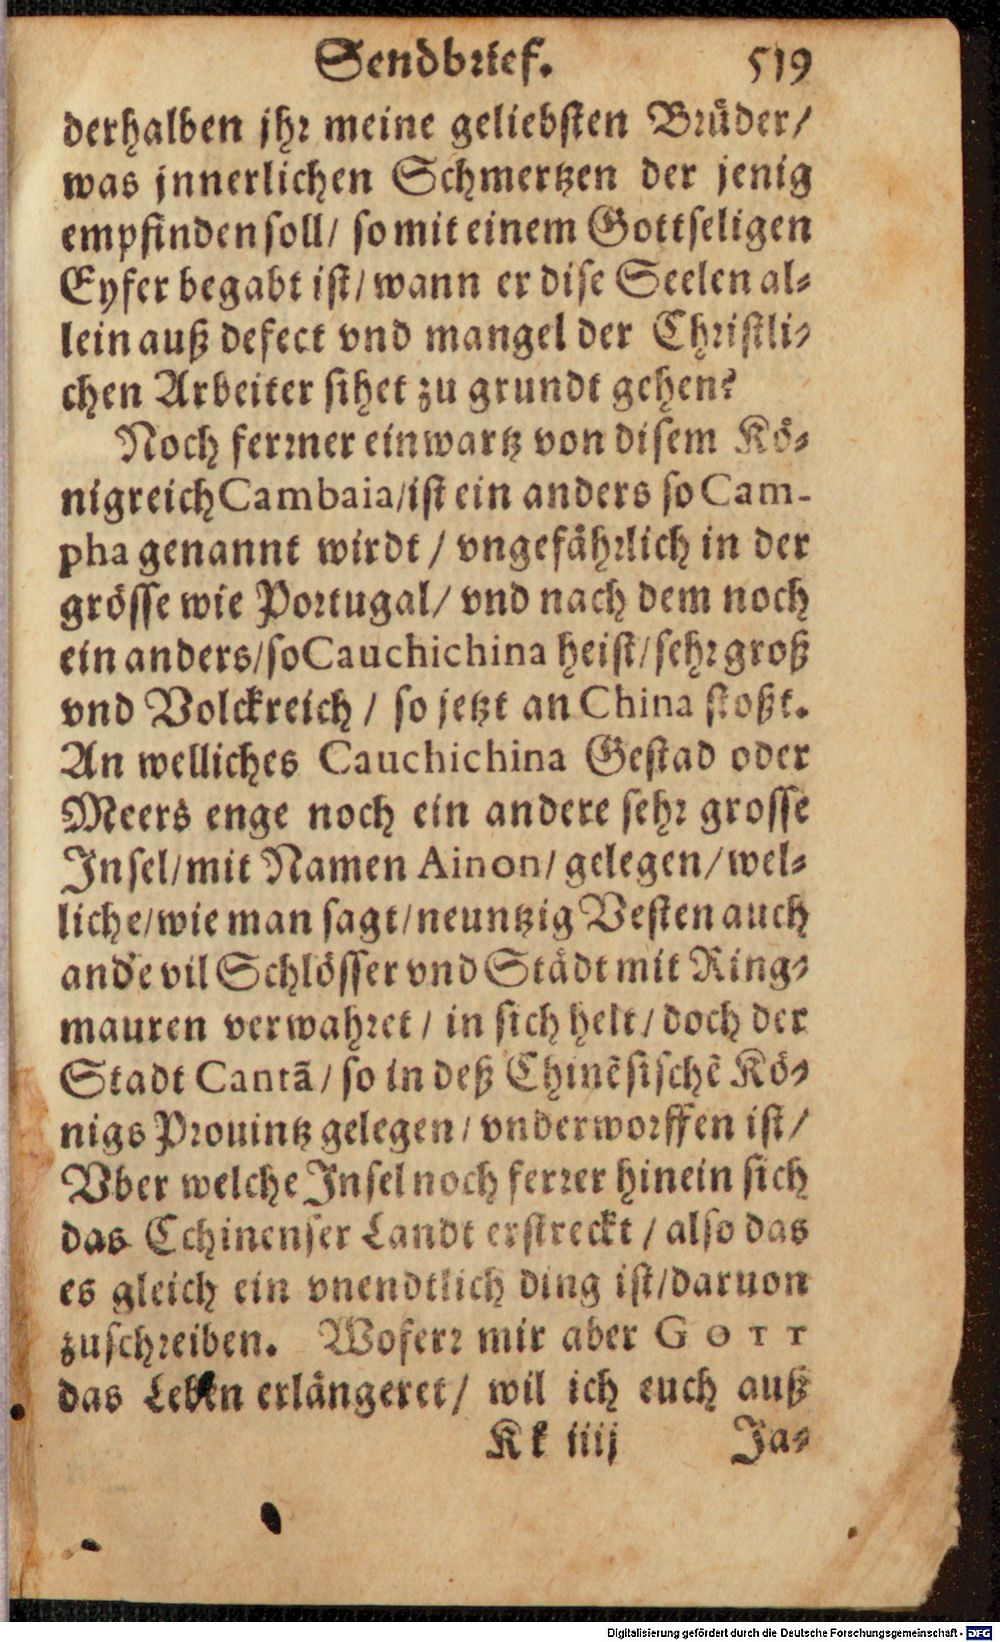 Sendbrief. 519
derhalben jhr meine geliebsten Brüder/
was jnnerlichen Schmertzen der jenig
empfinden soll/ so mit einem Gottseligen
Eyfer begabt ist/ wann er dise Seelen al-
lein auß defect vnd mangel der Christli-
chen Arbeiter sihet zu grundt gehen?
Noch ferrner einwartz von disem Kö-
nigreich Cambaia/ist ein anders so Cam-
pha genannt wirdt / vngefährlich in der
grösse wie Portugal/ vnd nach dem noch
ein anders/so Cauchichina heist/sehr groß
vnd Volckreich / so jetzt an China stoßt.
An welliches Cauchichina Gestad oder
Meers enge noch ein andere sehr grosse
Insel/mit Namen Ainon/ gelegen/ wel-
liche/wie man sagt/neuntzig Vesten auch
ande vil Schlösser vnd Städt mit Ring-
mauren verwahret / in sich helt/ doch der
Stadt Cantã/ so in deß Chinẽsischẽ Kö-
nigs Prouintz gelegen/ vnderworffen ist/
Vber welche Insel noch ferrer hinein sich
das Cchinenser Landt erstreckt / also das
es gleich ein vnendtlich ding ist/daruon
zuschreiben. Woferr mir aber GOTT
das Leben erlängeret/ wil ich euch auß
Kk iiij Ja-
Digitalisierung gefördert durch die Deutsche Forschungsgemeinschaft - DFG